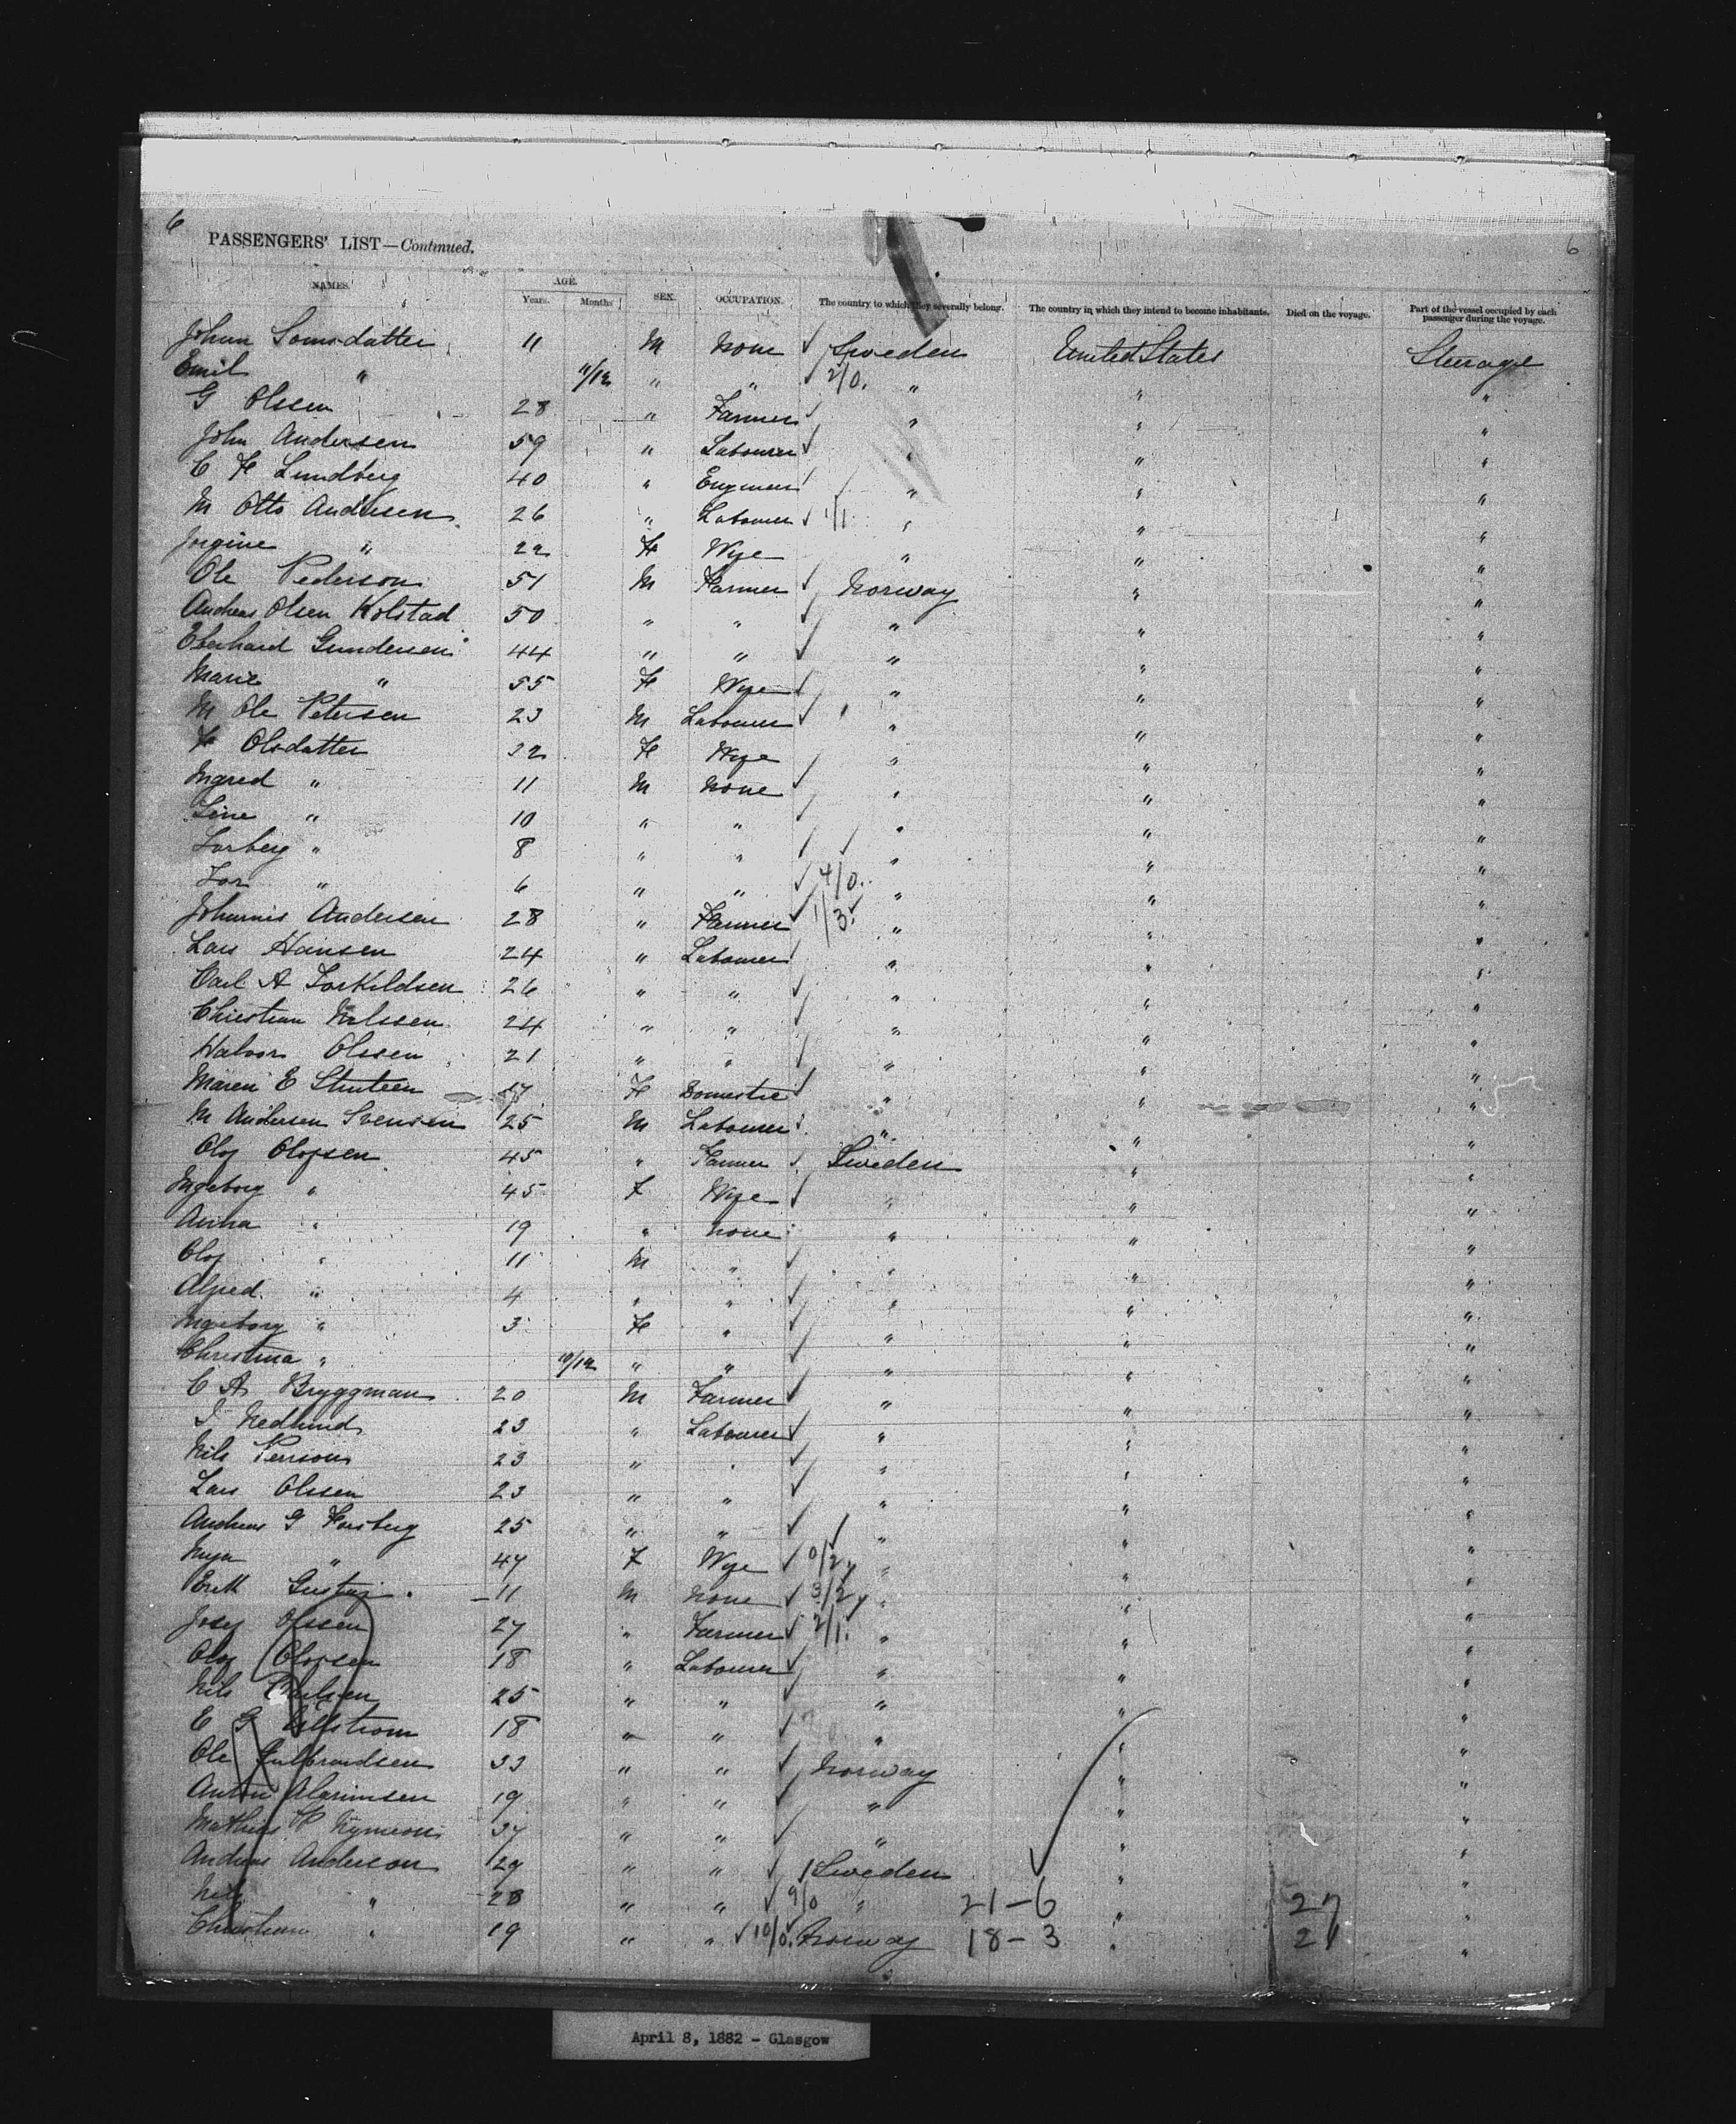 6 6
PASSENGERS' LIST—Continued.
NAMES. AGE. Years. Months SEX. OCCUPATION. The country to which they severally belong. The country in which they intend to become inhabitants. Died on the voyage. Part of the vessel occupied by each passenger during the voyage.
Johan 11 M None Sweden United States Steerage
Emil " 11/12 " " 2/0. " " "
G Olssen 28 " Farmer " " "
John Andersen 59 " Labourer " " "
C F Lundberg 40 " Engineer " " "
M Otto Andersen 26 " Labourer 1/1 " " "
Jorgine " 22 F Wife " " "
Ole Pederson 51 M Farmer Norway " "
Andreas Olsen Kolstad 50 " " " " "
Eberhard Gundersen 44 " " " " "
Marie " 55 F Wife " " "
M Ole Petersen 23 M Labourer " " "
F Olsdatter 32 F Wife " " "
Ingred " 11 M None " " "
Line " 10 " " " " "
Torberg " 8 " " " " "
Tor " 6 " " 4/0. " " "
Johannis Andersen 28 " Farmer 1/3. " " "
Lars Hansen 24 " Labourer " " "
Carl A Torkildsen 26 " " " " "
Christian Nilssen 24 " " " " "
Halvor Olssen 21 " " " " "
Maren E 17 F Domestic " " "
M Andersen Svensen 25 M Labourer " " "
Olof Olofsen 45 " Farmer Sweden " "
Ingeborg " 45 F Wife " " "
Anna " 19 " None " " "
Olof " 11 M " " " "
Alfred " 4 " " " " "
Ingeborg " 3 F " " " "
Christina " 10/12 " " " " "
C A Bryggman 20 M Farmer " " "
I Hedlund 23 " Labourer " " "
Nils Persson 23 " " " " "
Lars Olssen 23 " " " " "
Andreas G Forsberg 25 " " " " "
" 47 F Wife 0/2 " " "
Erik Gustaf 11 M None 3/2 " " "
Josef Olssen 27 " Farmer 2/1. " " "
Olof Olofsen 18 " Labourer " " "
Nils 25 " " " " "
E G 18 " " " " "
Ole Gulbrandsen 33 " " Norway " "
Anton 19 " " " " "
Mathias 37 " " " " "
Andreas Anderson 29 " " Sweden " "
Nils " 28 " " 9/0 " 21-6 " 27 "
Christian " 19 " " 10/0. Norway 18-3 " 21 "
April 8, 1882 - Glasgow